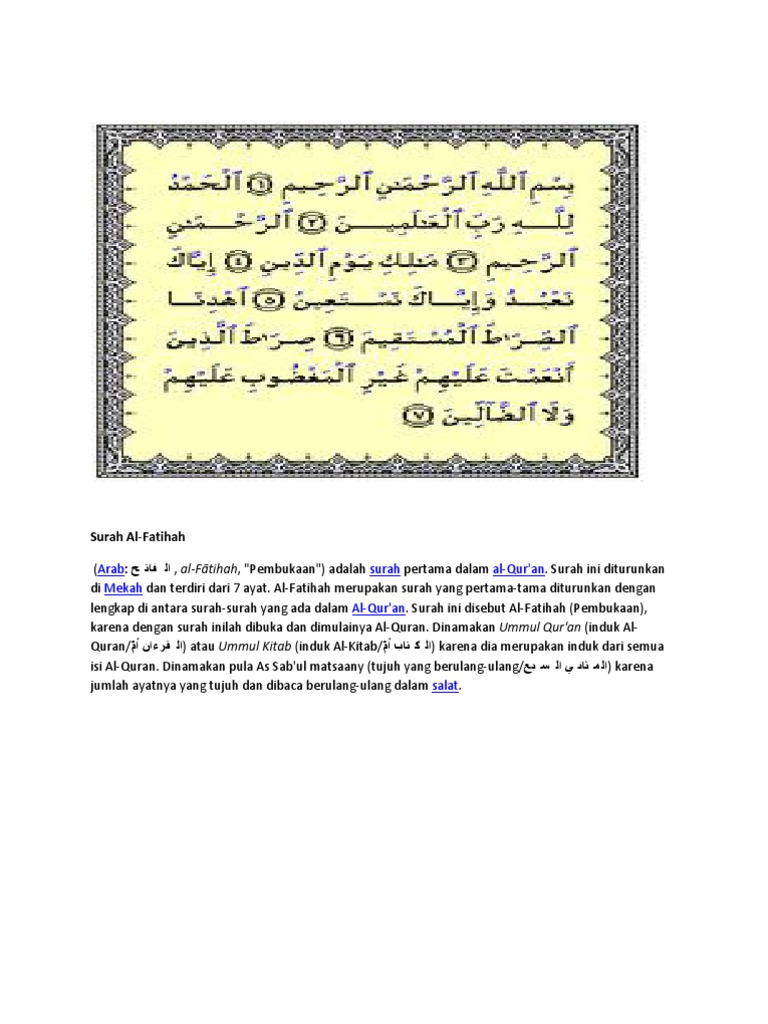 بِسْمِ ٱللَّهِ ٱلرَّحْمَـٰنِ ٱلرَّحِيمِ ١ ٱلْحَمْدُ
لِلَّـهِ رَبِّ ٱلْعَـٰلَمِيـنَ ٢ ٱلرَّحْـمَـٰنِ
ٱلرَّحِيمِ ٣ مَـٰلِكِ يَوْمِ ٱلدِّينِ ٤ إِيَّاكَ
نَعْبُـدُ وَإِيَّـاكَ نَسْـتَعِينُ ٥ ٱهْدِنَـا
ٱلصِّرَٰطَ ٱلْمُسْتَقِيمَ ٦ صِرَٰطَ ٱلَّذِينَ
أَنْعَمْتَ عَلَيْهِمْ غَيْرِ ٱلْمَغْضُوبِ عَلَيْهِمْ
وَلَا ٱلضَّآلِّينَ ٧
Surah Al-Fatihah
(Arab: الـ فاتـ ح , al-Fātihah, "Pembukaan") adalah surah pertama dalam al-Qur'an. Surah ini diturunkan
di Mekah dan terdiri dari 7 ayat. Al-Fatihah merupakan surah yang pertama-tama diturunkan dengan
lengkap di antara surah-surah yang ada dalam Al-Qur'an. Surah ini disebut Al-Fatihah (Pembukaan),
karena dengan surah inilah dibuka dan dimulainya Al-Quran. Dinamakan Ummul Qur'an (induk Al-
Quran/أمّ الـ قرءان) atau Ummul Kitab (induk Al-Kitab/أمّ الـ كـ تاب) karena dia merupakan induk dari semua
isi Al-Quran. Dinamakan pula As Sab'ul matsaany (tujuh yang berulang-ulang/الـ سـ بع الـ مـ ثانـ ي) karena
jumlah ayatnya yang tujuh dan dibaca berulang-ulang dalam salat.